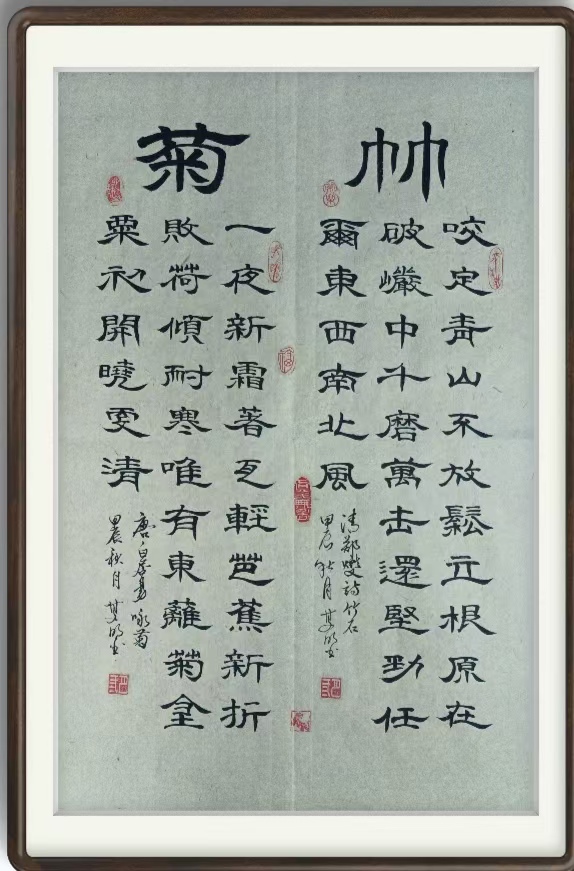 竹
咬定青山不放鬆立根原在
破巖中千磨萬击還堅勁任
爾東西南北風
清鄭燮詩竹石
甲辰秋月其明书
菊
一夜新霜著瓦輕芭蕉新折
敗荷傾耐寒唯有東籬菊金
粟初開曉更清
唐白居易咏菊
甲辰秋月其明书